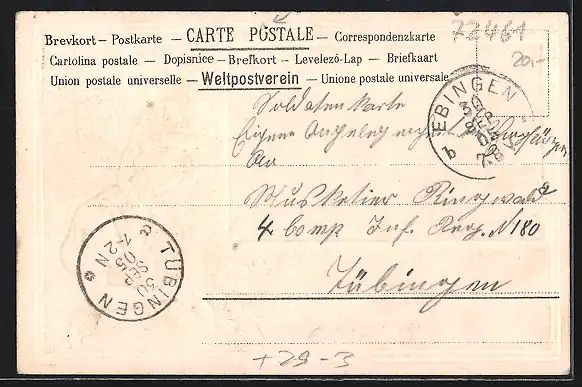 72461
20,-
Brevkort – Postkarte – CARTE POSTALE – Correspondenzkarte
Cartolina postale – Dopisnice – Brefkort – Levelező-Lap – Briefkaart
Union postale universelle – Weltpostverein – Unione postale universale
EBINGEN
b
Soldatenkarte
Eigene Angelegenheit
An
Musketier Ringwald
4 Comp Inf. Reg. N 180
Tübingen
TÜBINGEN
a
30
SEP
1-2 N
+29-3